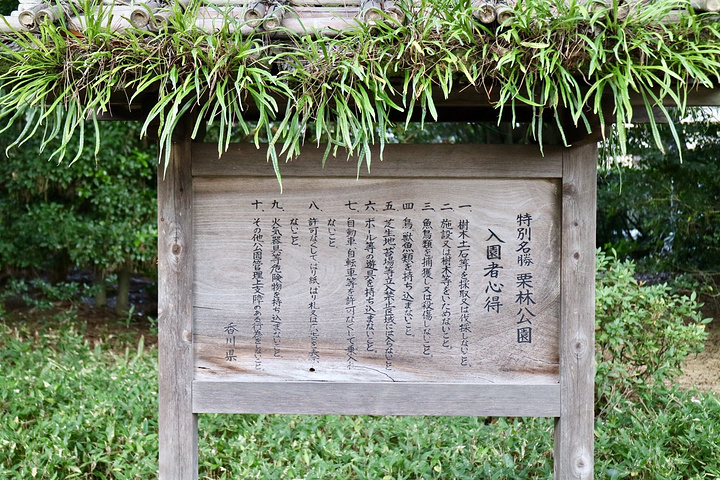 特別名勝 栗林公園
入園者心得
一、樹木土石等を採取又は伐採しないこと。
二、施設又は樹木等をいためないこと。
三、魚鳥類を捕獲し又は殺傷しないこと。
四、鳥獣魚類を持ち込まないこと。
五、芝生地、苔場等立入禁止区域には入らないこと。
六、ボール等の遊具を持ち込まないこと。
七、自動車、自転車等を許可なくして乗入れ
ないこと。
八、許可なくしてはり紙、はり札又は広告を表示
ないこと。
九、火気器具等危険物を持ち込まないこと。
十、その他公園管理上支障のある行為をしないこと。
香川県